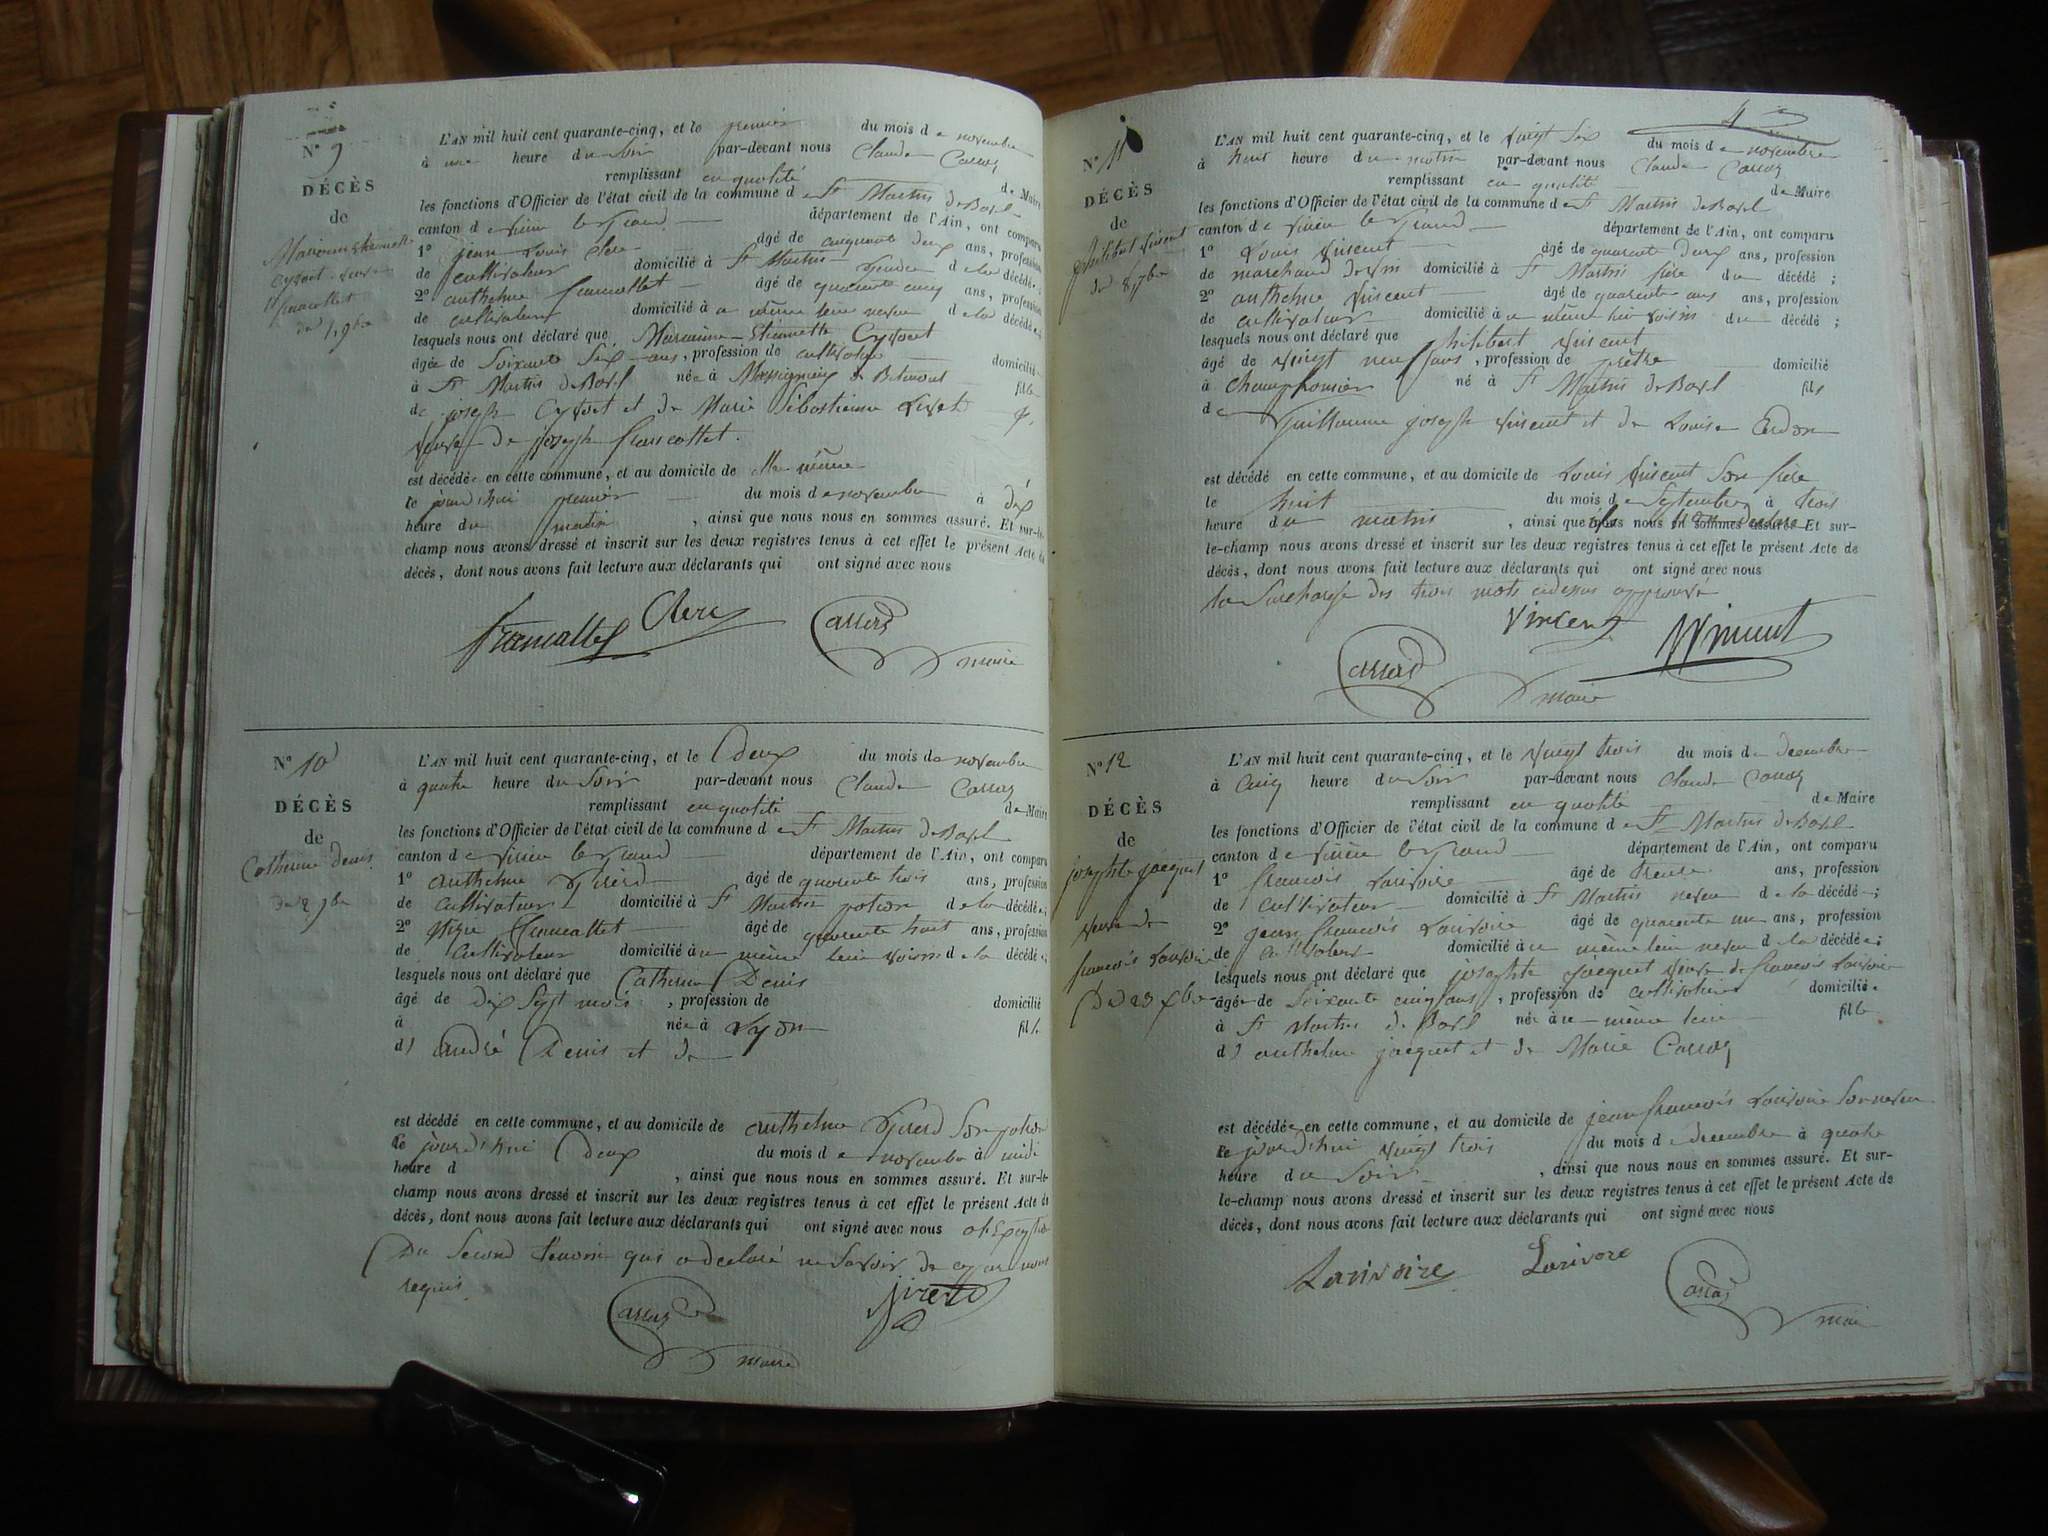 N° 9
DÉCÈS
de
Marianne Etiennette
Cyvoct veuve
francollet
du 1, 9bre
L'AN mil huit cent quarante-cinq, et le premier du mois de novembre
à une heure du soir par-devant nous Claude Carros
remplissant en qualité de Maire
les fonctions d'Officier de l'état civil de la commune de St Martin de Bavel
canton de virieu le grand département de l'Ain, ont comparu
1° jean Louis Clerc âgé de cinquante deux ans, profession
de cultivateur domicilié à St Martin gendre de la décédée;
2° anthelme francollet âgé de quarante cinq ans, profession
de cultivateur domicilié à u même lieu neveu de la décédée;
lesquels nous ont déclaré que Marianne Etiennette Cyvoct
âgée de Soixante Six ans, profession de cultivatrice domiciliée
à St Martin de Bavel née à Massignieu de Belmont fille
de joseph Cyvoct et de Marie Sébastienne
veuve de joseph francollet.
est décédée en cette commune, et au domicile de elle même
le jourd'hui premier du mois de novembre à dix
heure du matin, ainsi que nous nous en sommes assuré. Et sur-le-
champ nous avons dressé et inscrit sur les deux registres tenus à cet effet le présent Acte de
décès, dont nous avons fait lecture aux déclarants qui ont signé avec nous
francollet Clerc Carros
maire
N° 10
DÉCÈS
de
Catherine Denis
du 2 9bre
L'AN mil huit cent quarante-cinq, et le deux du mois de novembre
à quatre heure du Soir par-devant nous Claude Carros
remplissant en qualité de Maire
les fonctions d'Officier de l'état civil de la commune de St Martin de Bavel
canton de virieu le grand département de l'Ain, ont comparu
1° anthelme Girerd âgé de quarente trois ans, profession
de cultivateur domicilié à St Martin patron de la décédée;
2° francollet âgé de quarente huit ans, profession
de cultivateur domicilié à u même lieu voisin de la décédée;
lesquels nous ont déclaré que Catherine Denis
âgé de dix Sept mois, profession de domicilié
à née à Lyon fille
d' André Denis et de
est décédé en cette commune, et au domicile de anthelme Girerd Son patron
le jourd'hui deux du mois de novembre à midi
heure d , ainsi que nous nous en sommes assuré. Et sur-le-
champ nous avons dressé et inscrit sur les deux registres tenus à cet effet le présent Acte de
décès, dont nous avons fait lecture aux déclarants qui ont signé avec nous
Du Second témoin qui a déclaré ne Savoir de ce par nous
requis.
Carros girerd
maire
N° 11
DÉCÈS
de
philibert vincent
du 8 7bre
L'AN mil huit cent quarante-cinq, et le vingt Six du mois de novembre
à huit heure du matin par-devant nous Claude Carros
remplissant en qualité de Maire
les fonctions d'Officier de l'état civil de la commune de St Martin de Bavel
canton de virieu le grand département de l'Ain, ont comparu
1° Louis vincent âgé de quarente deux ans, profession
de marchand de vin domicilié à St Martin frère du décédé;
2° anthelme vincent âgé de quarente ans, profession
de cultivateur domicilié à u même lieu voisin du décédé;
lesquels nous ont déclaré que philibert vincent
âgé de vingt neuf ans, profession de prêtre domicilié
à Champfromier né à St Martin de Bavel fils
de Guillaume joseph vincent et de Louise
est décédé en cette commune, et au domicile de Louis vincent Son frère
le huit du mois de Septembre à trois
heure du matin, ainsi que nous nous en sommes assuré. Et sur-
le-champ nous avons dressé et inscrit sur les deux registres tenus à cet effet le présent Acte de
décès, dont nous avons fait lecture aux déclarants qui ont signé avec nous
la Surcharge des trois mots cidessus approuvé
vincent Vincent
Carros
maire
N° 12
DÉCÈS
de
josephte jacquet
veuve de
francois Larivoire
Du 23 Xbre
L'AN mil huit cent quarante-cinq, et le vingt trois du mois de decembre
à Cinq heure du Soir par-devant nous Claude Carros
remplissant en qualité de Maire
les fonctions d'Officier de l'état civil de la commune de St Martin de Bavel
canton de virieu le grand département de l'Ain, ont comparu
1° francois Larivoire âgé de trente ans, profession
de cultivateur domicilié à St Martin neveu de la décédée;
2° jean francois Larivoire âgé de quarente un ans, profession
de cultivateur domicilié à u même lieu neveu de la décédée;
lesquels nous ont déclaré que josephte jacquet veuve de francois Larivoire
âgée de Soixante cinq ans, profession de cultivatrice domiciliée
à St Martin de Bavel née à u même lieu fille
d' anthelme jacquet et de Marie Carros
est décédée en cette commune, et au domicile de jean francois Larivoire Son neveu
le jourd'hui vingt trois du mois de decembre à quatre
heure du Soir, ainsi que nous nous en sommes assuré. Et sur-
le-champ nous avons dressé et inscrit sur les deux registres tenus à cet effet le présent Acte de
décès, dont nous avons fait lecture aux déclarants qui ont signé avec nous
Larivoire Larivore
Carros
maire